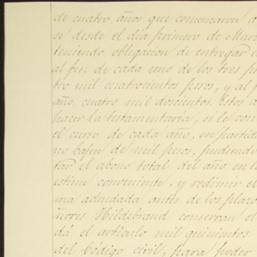 de cuatro años que comenzarán á
se desde el dia primero de Mar
teniendo obligacion de entregar
al fin de cada uno de los tres p
tro mil cuatrocientos pesos, y al f
año cuatro mil doscientos. Estos a
hacer la testamentaria, si le con
el curso de cada año, en partid
no bajen de mil pesos, pudiendo
tar el abono total del año en la
estime conveniente, y redimir el
ma adeudada antes de los plazo
ñores Hildebrand conservan el
dá el artículo mil quinientos
del Código civil, para poder